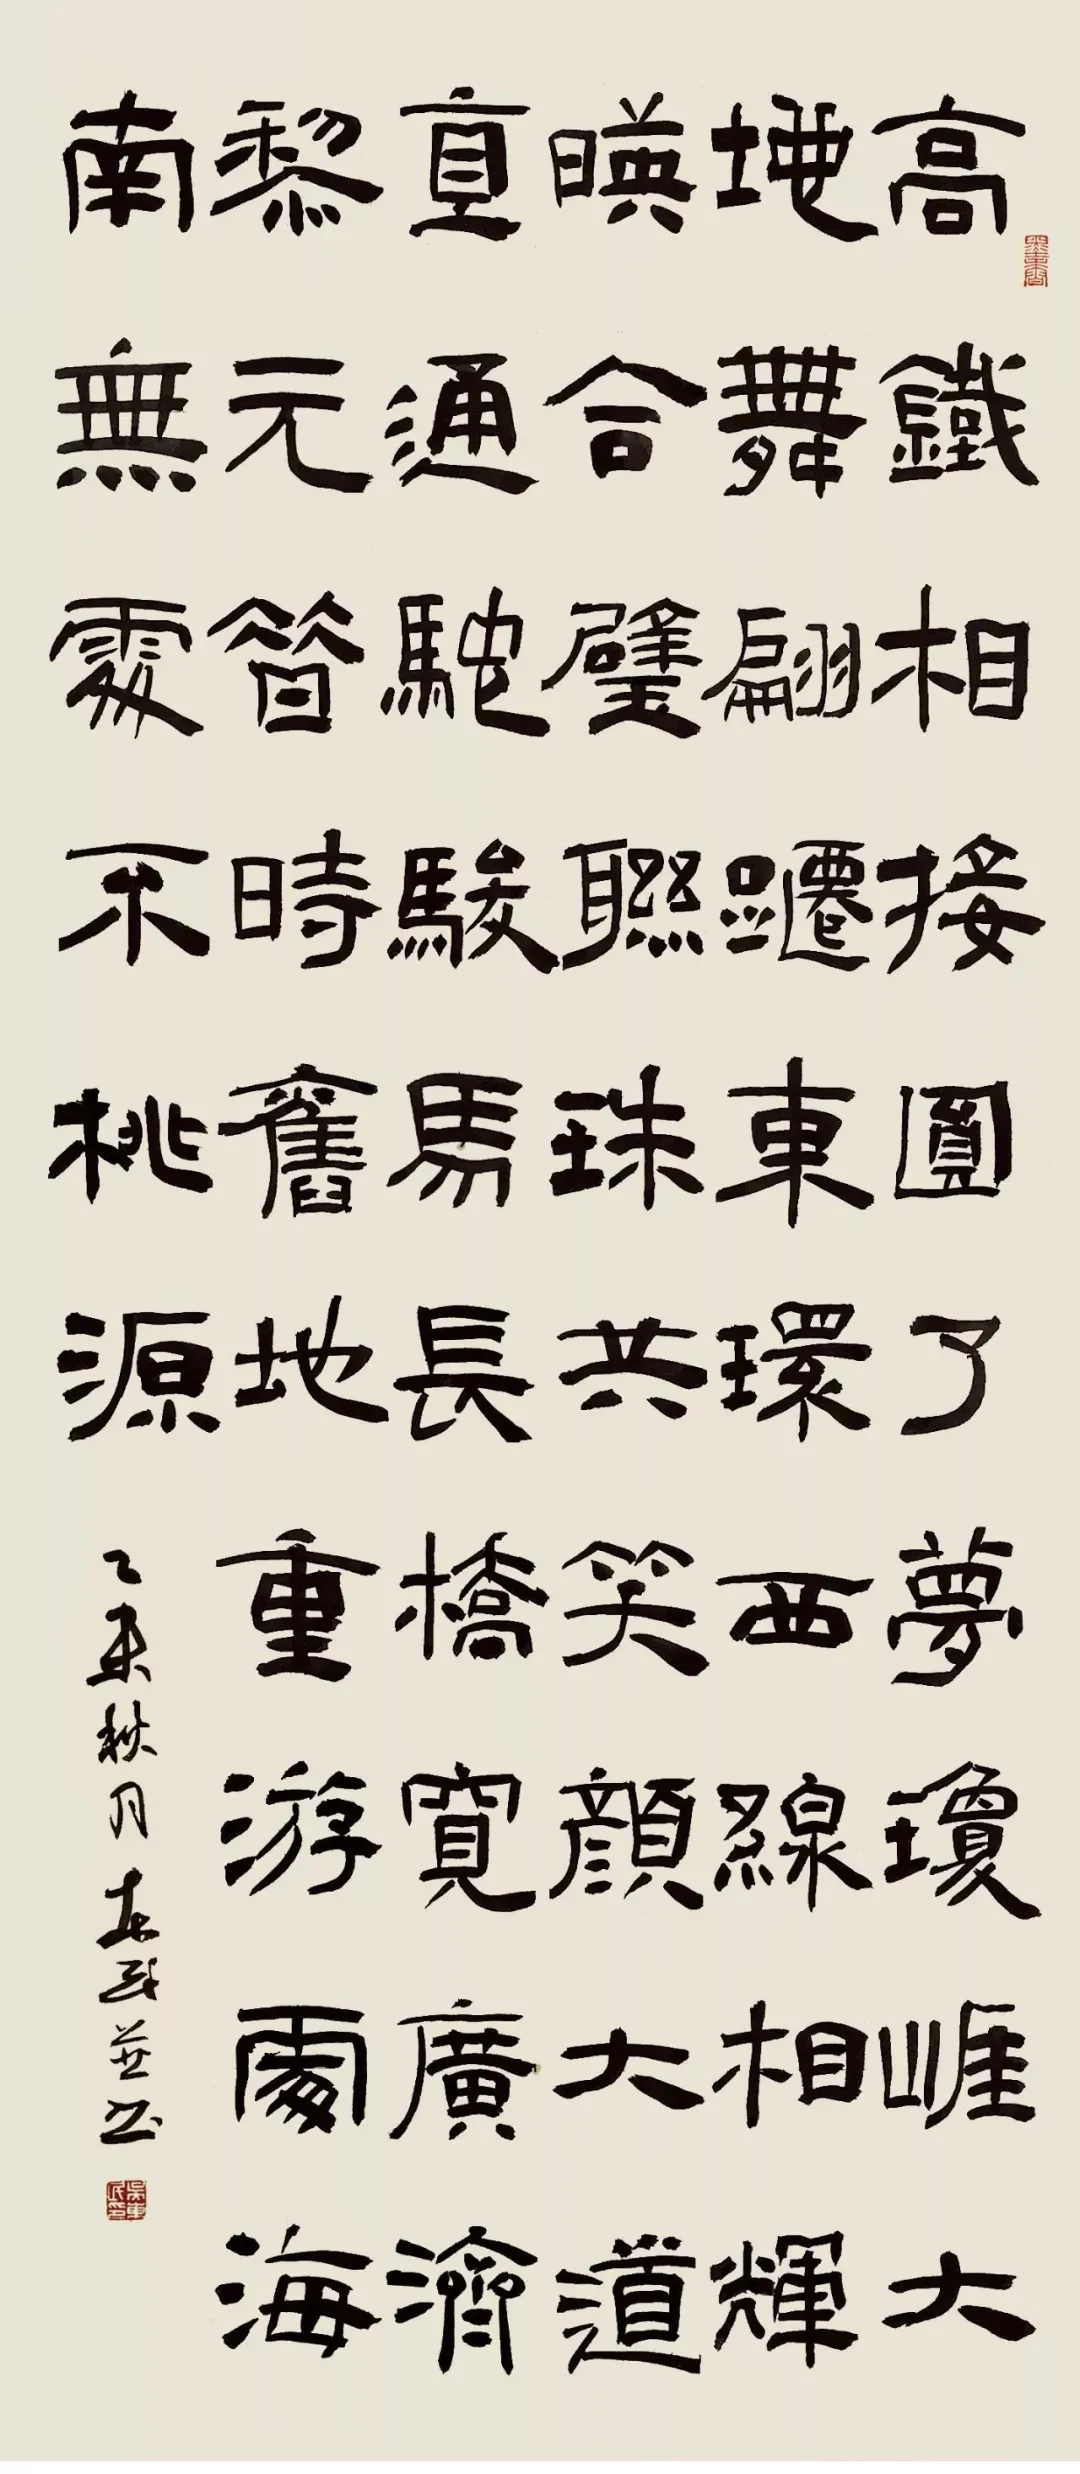 高鐵相接圓了夢瓊崕大
地舞翩躚東環西線相輝
暎合璧聯珠共笑顔大道
亘通馳駿馬長橋寬廣濟
黎元昝時舊地重游處海
南無處不桃源
乙未秋月
並書